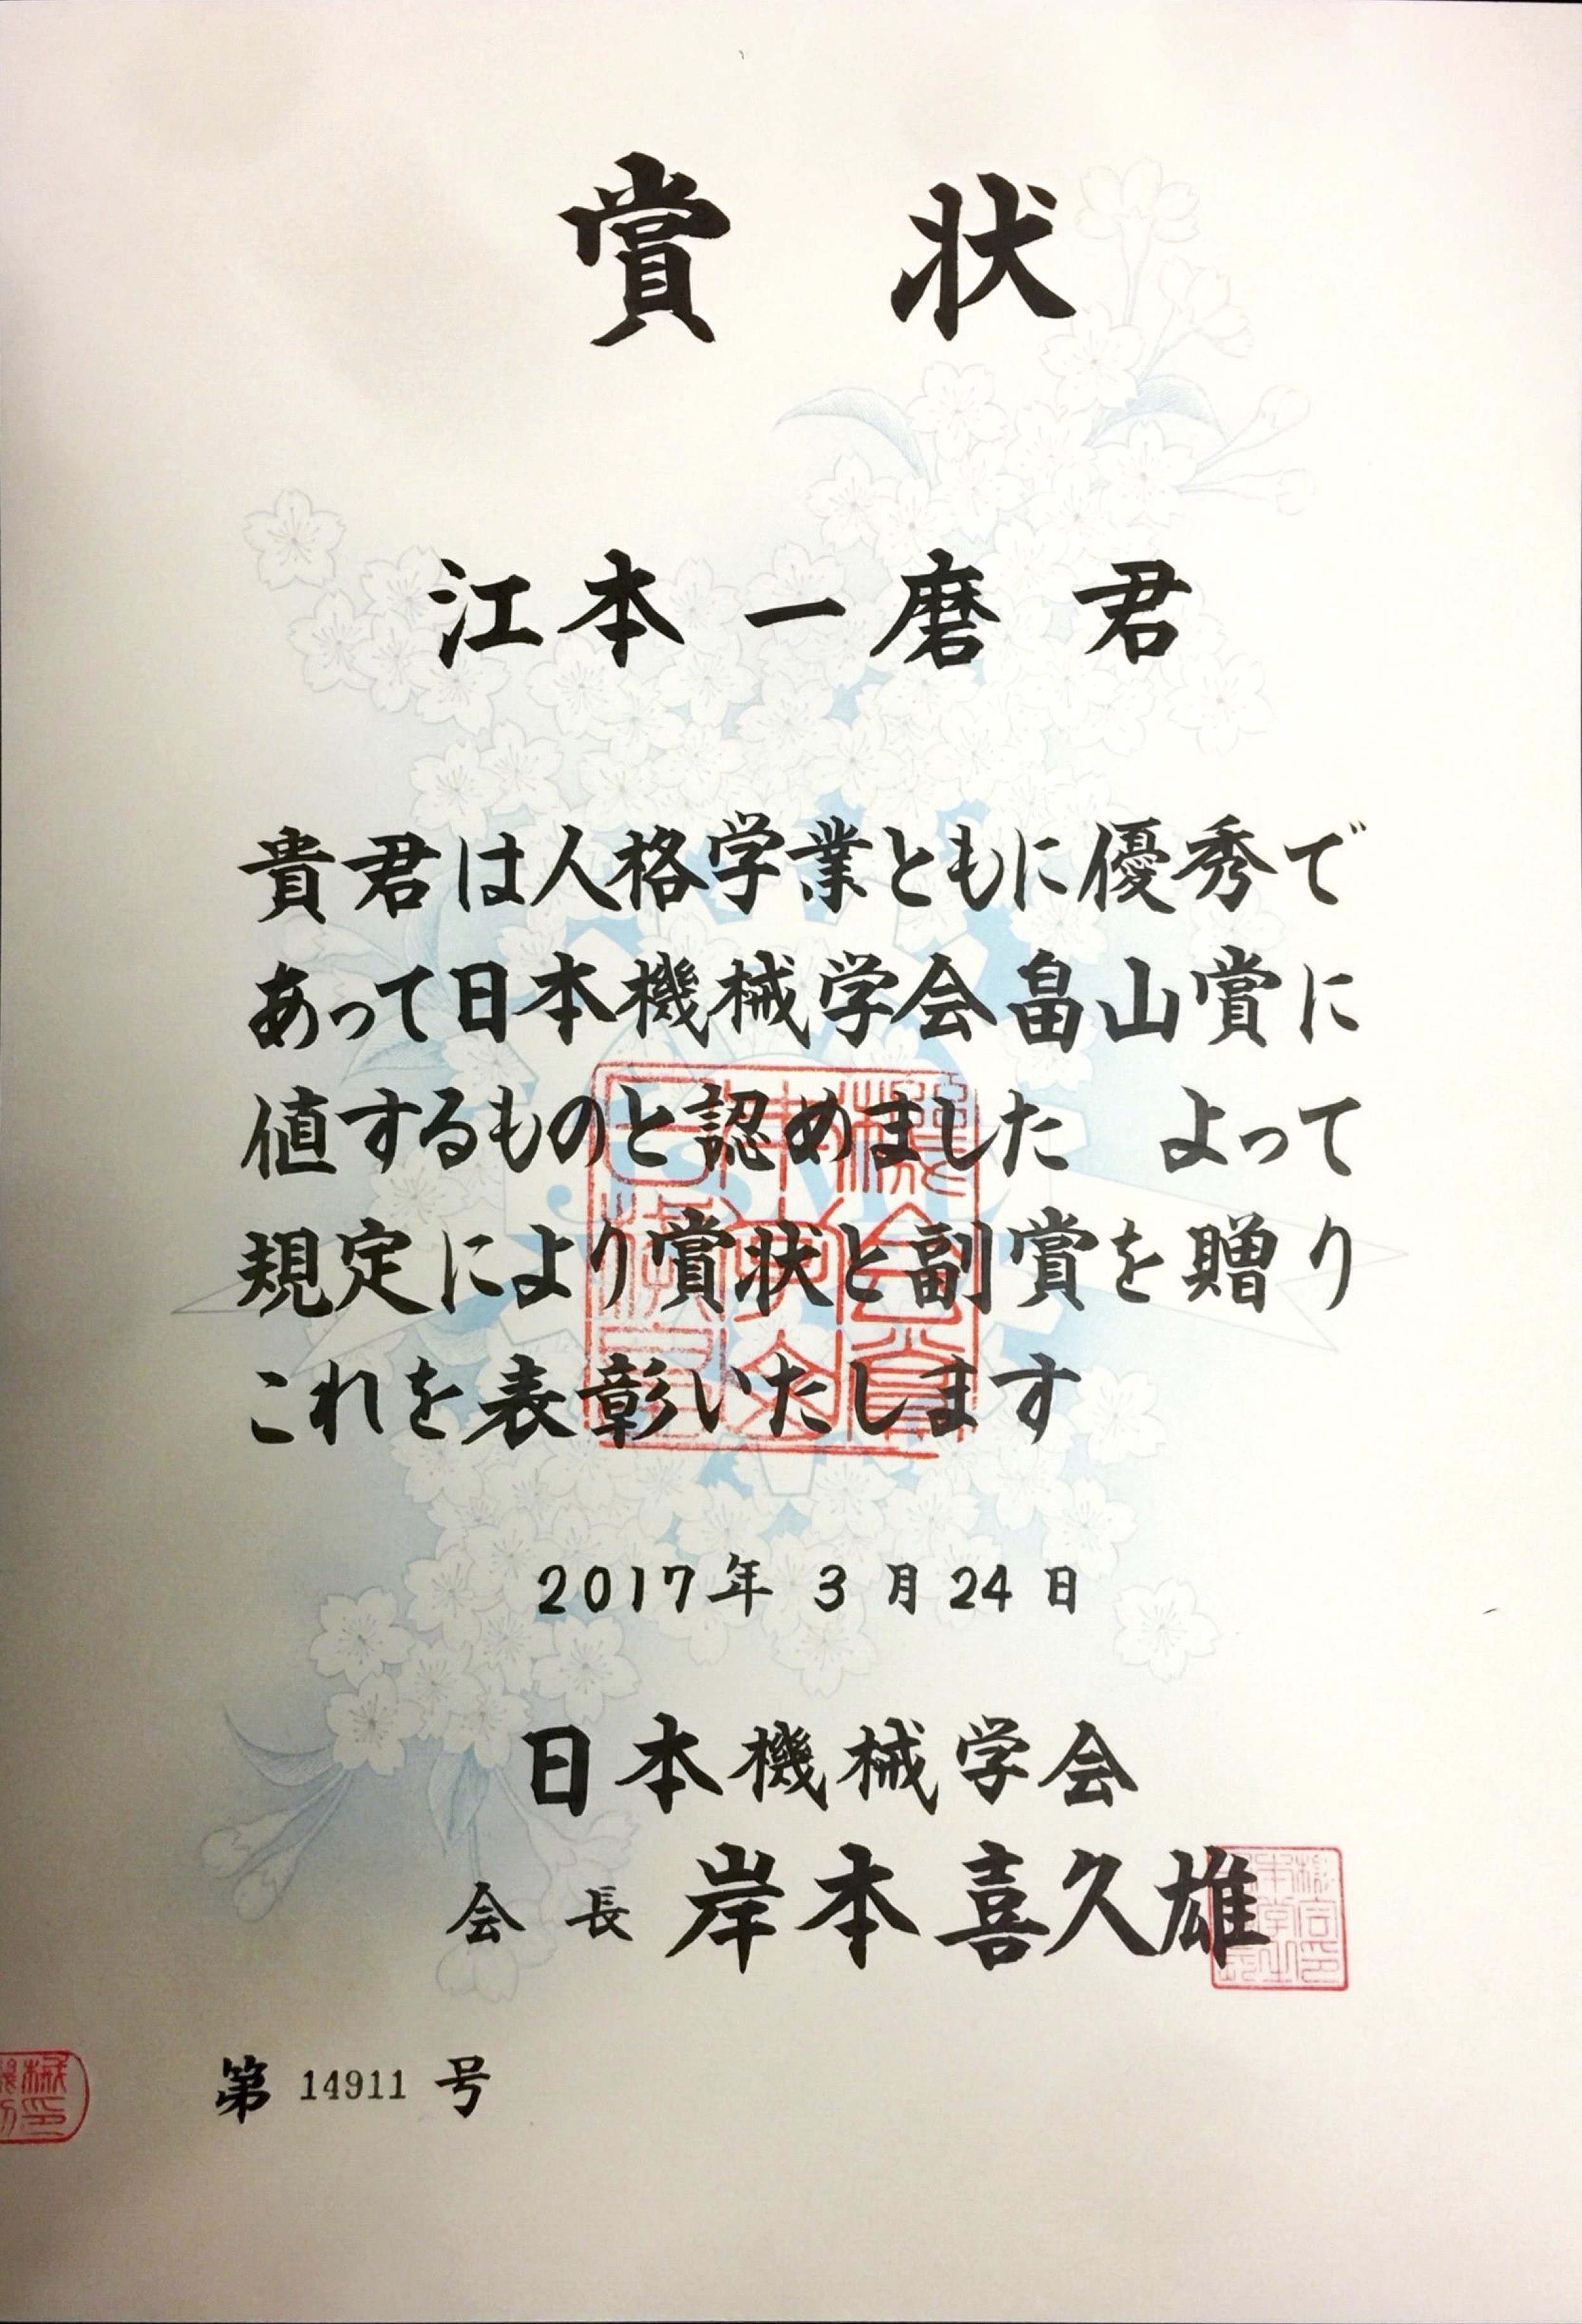 賞状
江本一磨君
貴君は人格学業ともに優秀で
あって日本機械学会畠山賞に
値するものと認めました　よって
規定により賞状と副賞を贈り
これを表彰いたします
2017年3月24日
日本機械学会
会長 岸本喜久雄
第 14911 号